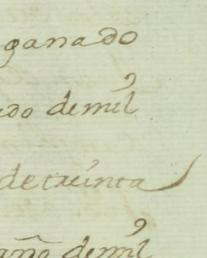 ganado
do demil
detreinta
año demil